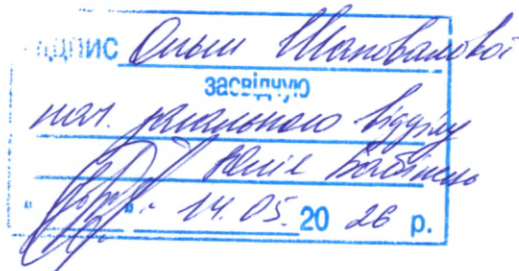 підпис Ольги Шаповалової
засвідчую
нач. загального відділу
Юлія Бабінець
" " 14.05. 2026 р.